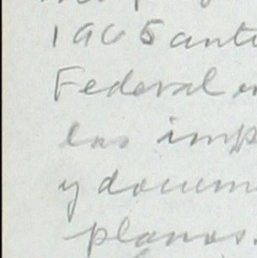 1965 ante
Federal e
las imp
y docum
planos.